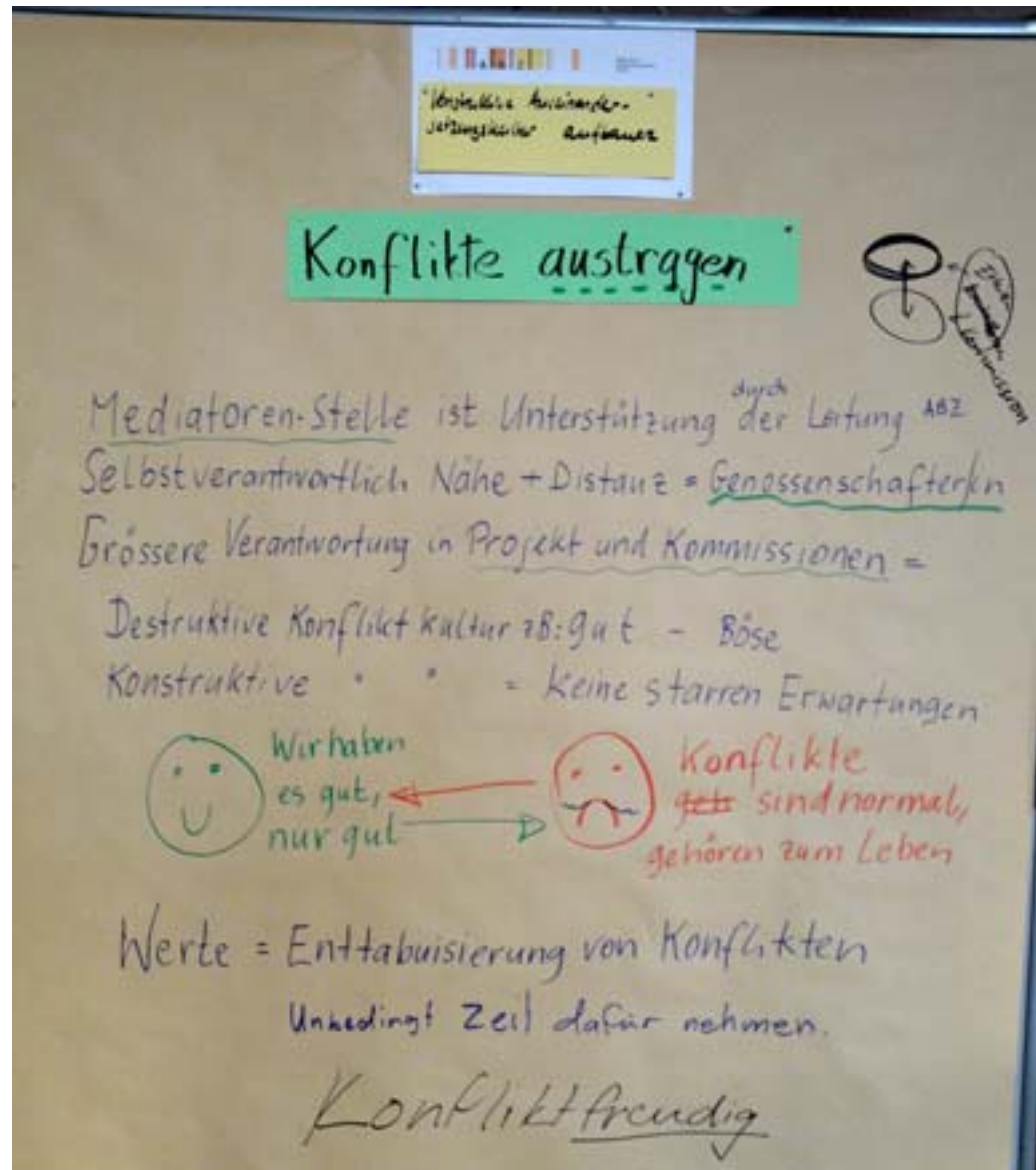 "Konstruktive Auseinander-"
setzungskultur aufbauen
Konflikte austragen
Kommission
durch
Mediatoren-Stelle ist Unterstützung der Leitung ABZ
Selbstverantwortlich Nähe + Distanz = Genossenschafter/in
Grössere Verantwortung in Projekt und Kommissionen =
Destruktive Konflikt kultur zB: gut - Böse
Konstruktive " " = keine starren Erwartungen
Wir haben
es gut,
nur gut
Konflikte
sind normal,
gehören zum Leben
Werte = Enttabuisierung von Konflikten
Unbedingt Zeit dafür nehmen.
Konfliktfreudig